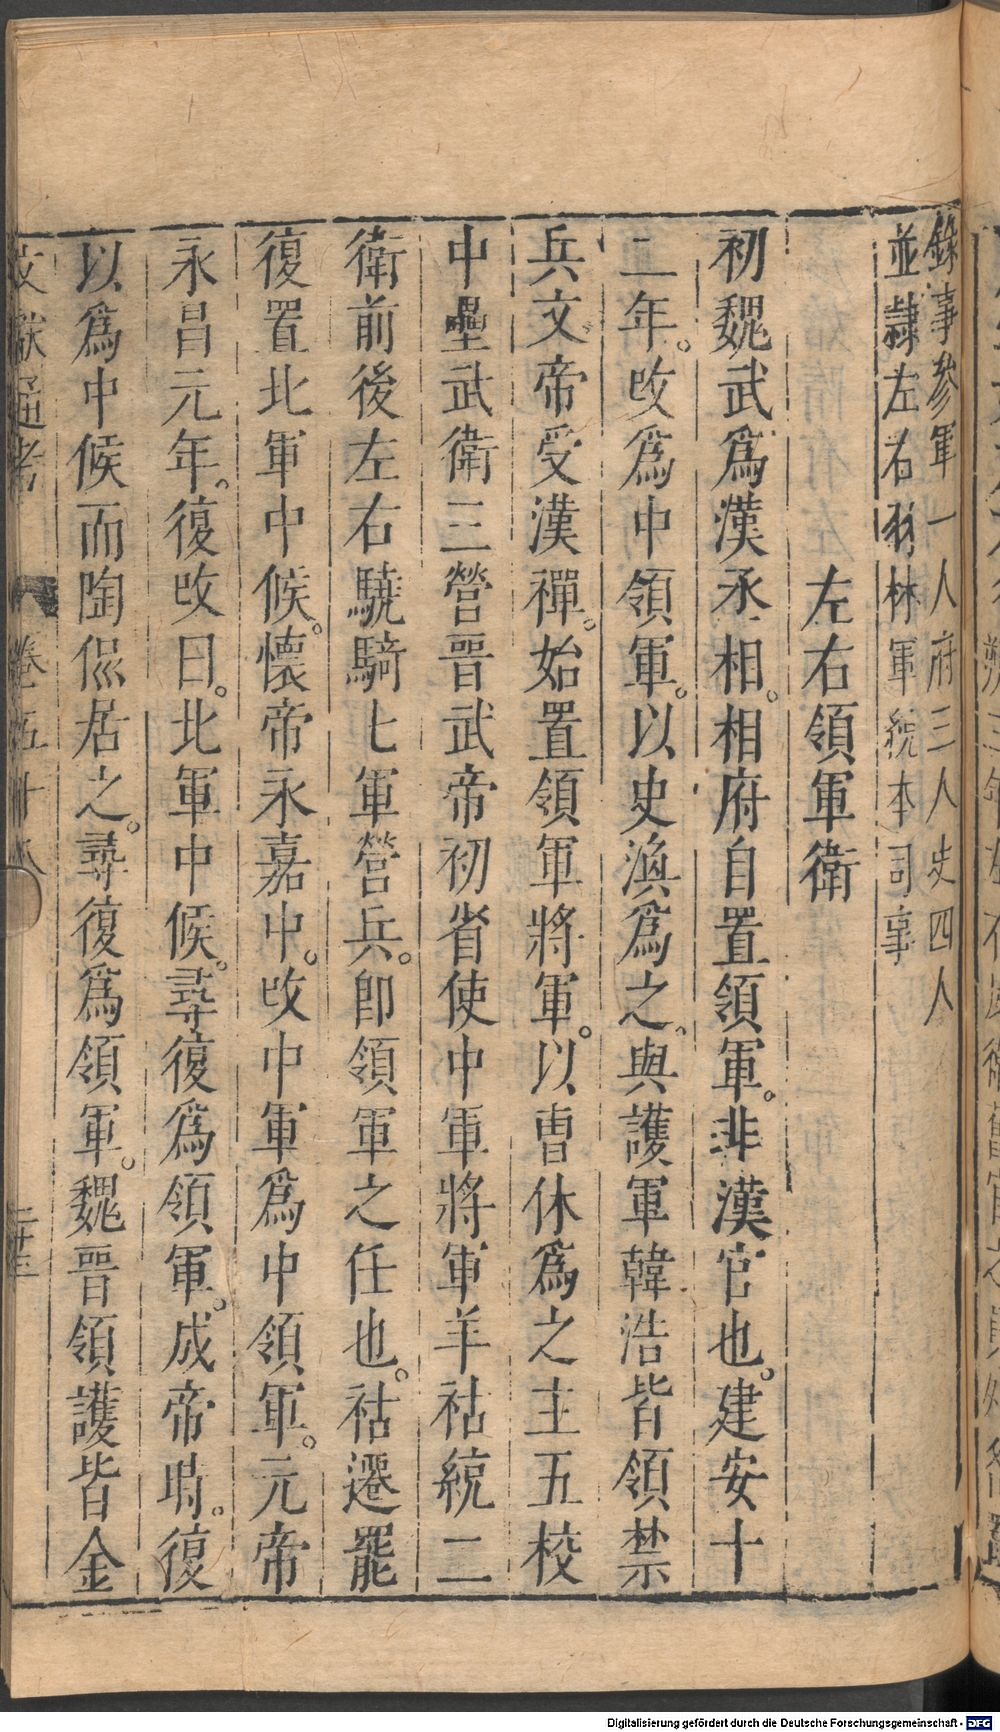 錄事參軍一人府三人史四人
並隷左右羽林軍統本司事
左右領軍衛
初魏武爲漢丞相。相府自置領軍。非漢官也。建安十
二年。攺爲中領軍。以史渙爲之。與護軍韓浩皆領禁
兵文帝受漢禪。始置領軍將軍。以曹休爲之主五校
中壘武衛三營晉武帝初省使中軍將軍羊祜統二
衛前後左右驍騎七軍營兵。卽領軍之任也。祜遷罷
復置北軍中候。懷帝永嘉中。攺中軍爲中領軍。元帝
永昌元年。復攺曰。北軍中候。尋復爲領軍。成帝時。復
以爲中候而陶侃居之。尋復爲領軍。魏晉領護皆金
文獻通考 卷五十八
Digitalisierung gefördert durch die Deutsche Forschungsgemeinschaft - DFG